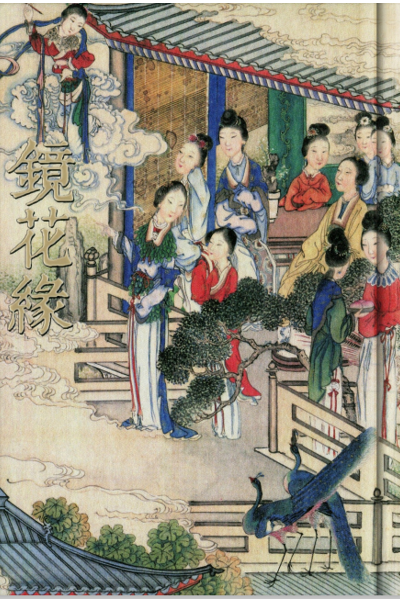 鏡花緣